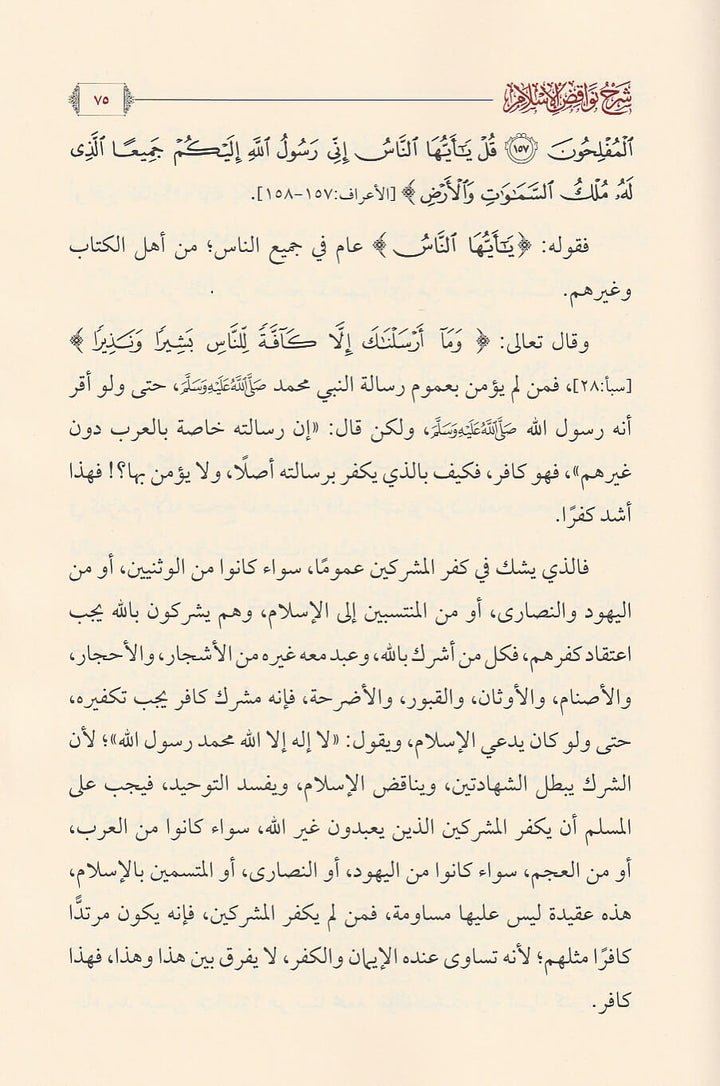 شرح نواقض الإسلام
٧٥
ٱلْمُفْلِحُونَ ١٥٧ قُلْ يَـٰٓأَيُّهَا ٱلنَّاسُ إِنِّى رَسُولُ ٱللَّهِ إِلَيْكُمْ جَمِيعًا ٱلَّذِى
لَهُۥ مُلْكُ ٱلسَّمَـٰوَٰتِ وَٱلْأَرْضِ ﴾ [الأعراف:١٥٧-١٥٨].
فقوله: ﴿يَـٰٓأَيُّهَا ٱلنَّاسُ ﴾ عام في جميع الناس؛ من أهل الكتاب
وغيرهم.
وقال تعالى: ﴿ وَمَآ أَرْسَلْنَـٰكَ إِلَّا كَآفَّةً لِّلنَّاسِ بَشِيرًا وَنَذِيرًا ﴾
[سبأ:٢٨]، فمن لم يؤمن بعموم رسالة النبي محمد صَلَّى اللَّهُ عَلَيْهِ وَسَلَّمَ، حتى ولو أقر
أنه رسول الله صَلَّى اللَّهُ عَلَيْهِ وَسَلَّمَ، ولكن قال: «إن رسالته خاصة بالعرب دون
غيرهم»، فهو كافر، فكيف بالذي يكفر برسالته أصلًا، ولا يؤمن بها؟! فهذا
أشد كفرًا.
فالذي يشك في كفر المشركين عمومًا، سواء كانوا من الوثنيين، أو من
اليهود والنصارى، أو من المنتسبين إلى الإسلام، وهم يشركون بالله يجب
اعتقاد كفرهم، فكل من أشرك بالله، وعبد معه غيره من الأشجار، والأحجار،
والأصنام، والأوثان، والقبور، والأضرحة، فإنه مشرك كافر يجب تكفيره،
حتى ولو كان يدعي الإسلام، ويقول: «لا إله إلا الله محمد رسول الله»؛ لأن
الشرك يبطل الشهادتين، ويناقض الإسلام، ويفسد التوحيد، فيجب على
المسلم أن يكفر المشركين الذين يعبدون غير الله، سواء كانوا من العرب،
أو من العجم، سواء كانوا من اليهود، أو النصارى، أو المتسمين بالإسلام،
هذه عقيدة ليس عليها مساومة، فمن لم يكفر المشركين، فإنه يكون مرتدًّا
كافرًا مثلهم؛ لأنه تساوى عنده الإيمان والكفر، لا يفرق بين هذا وهذا، فهذا
كافر.